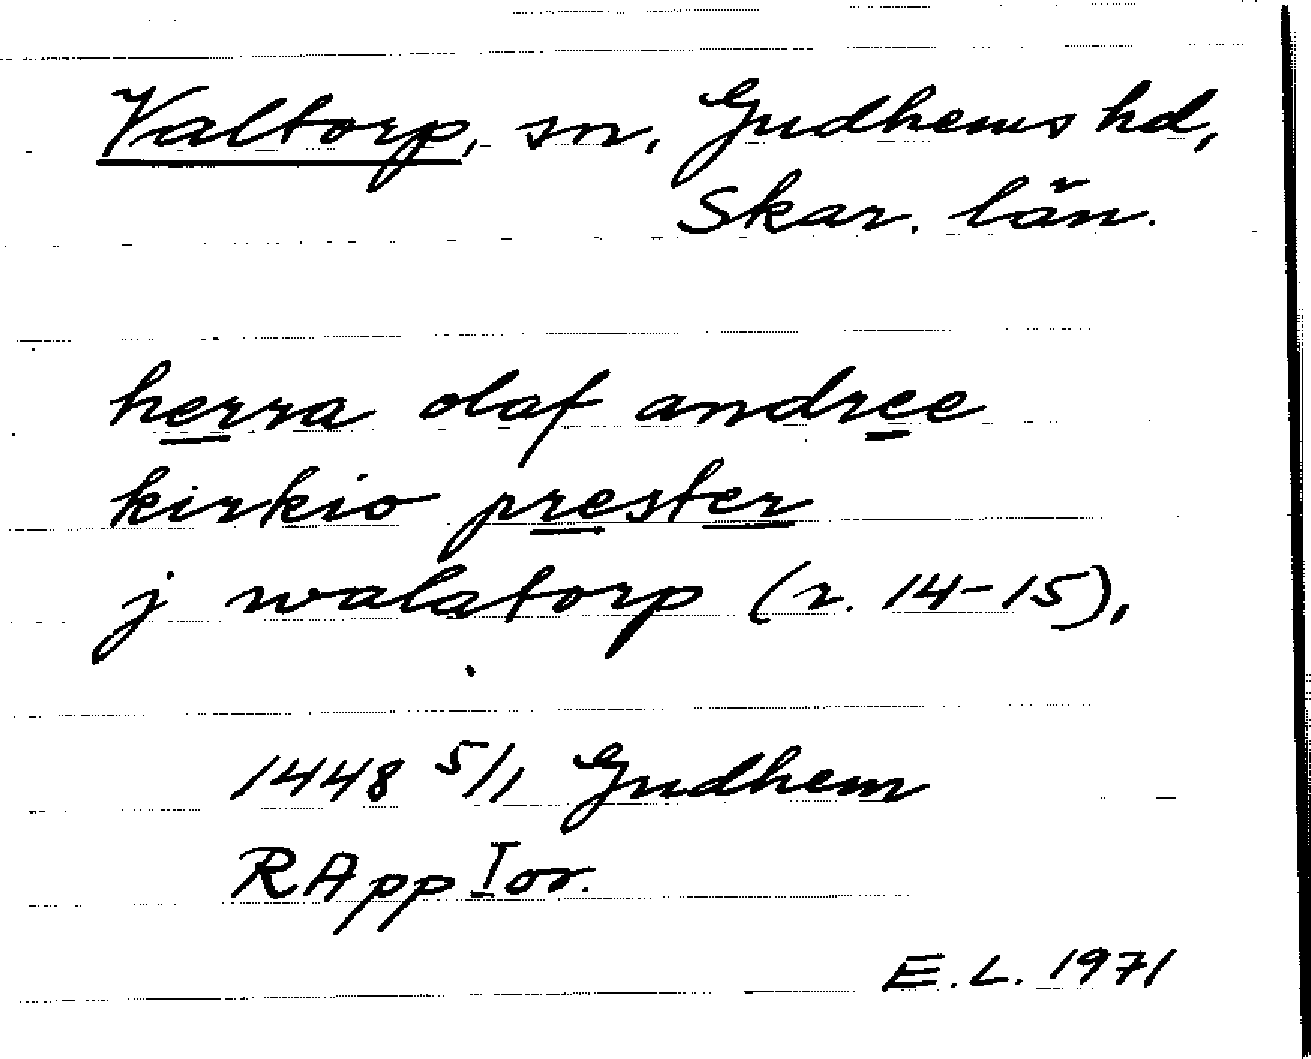 Valtorp, sn, Gudhems hd,
Skar. län.
herra olaf andree
kirkio prester
j walatorp (r. 14-15),
1448 5/1 Gudhem
RApp I or.
E.L. 1971